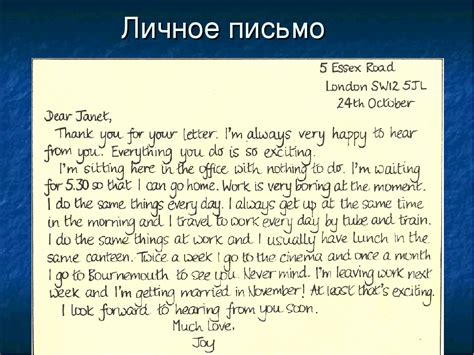 Личное письмо
5 Essex Road
London SW12 5JL
24th October
Dear Janet,
Thank you for your letter. I'm always very happy to hear
from you. Everything you do is so exciting.
I'm sitting here in the office with nothing to do. I'm waiting
for 5.30 so that I can go home. Work is very boring at the moment.
I do the same things every day. I always get up at the same time
in the morning and I travel to work every day by tube and train.
I do the same things at work and I usually have lunch in the
same canteen. Twice a week I go to the cinema and once a month
I go to Bournemouth to see you. Never mind. I'm leaving work next
week and I'm getting married in November! At least that's exciting.
I look forward to hearing from you soon.
Much love,
Joy